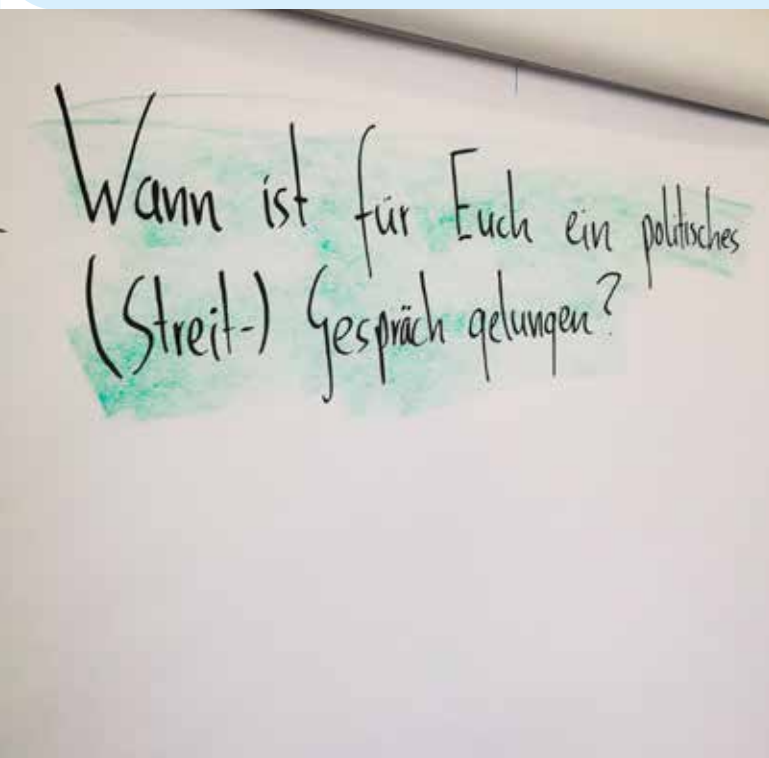 Wann ist für Euch ein politisches
(Streit-) Gespräch gelungen?